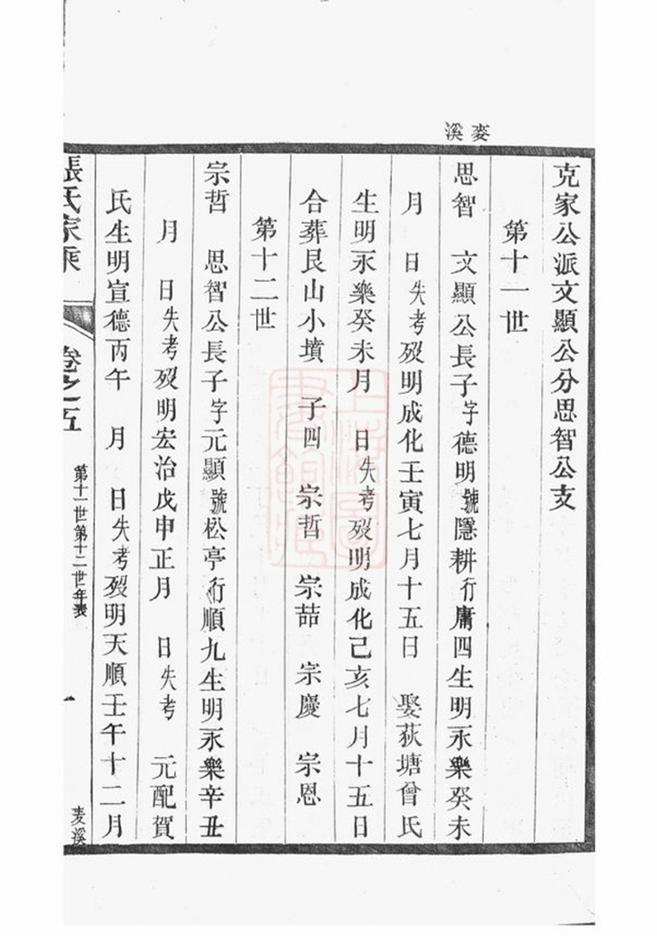 麥溪
克家公派文顯公分思智公支
第十一世
思智 文顯公長子字德明號隱耕行庸四生明永樂癸未
月 日失考歿明成化壬寅七月十五日 娶荻塘曾氏
生明永樂癸未月 日失考歿明成化己亥七月十五日
合葬艮山小墳 子四 宗哲 宗喆 宗慶 宗恩
第十二世
宗哲 思智公長子字元顯號松亭行順九生明永樂辛丑
月 日失考歿明宏治戊申正月 日失考 元配賀
氏生明宣德丙午 月 日失考歿明天順壬午十二月
張氏家乘
卷之五
第十一世第十二世年表
一
麦溪